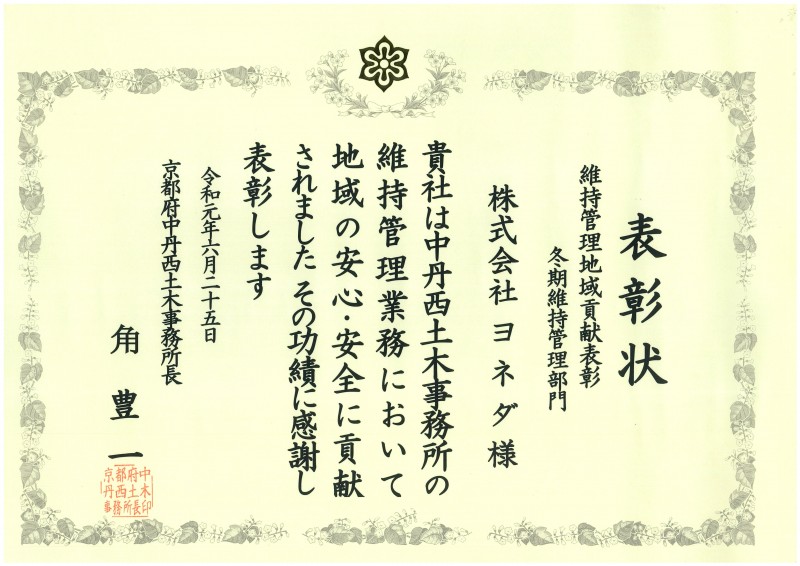 表彰状
維持管理地域貢献表彰
冬期維持管理部門
株式会社ヨネダ様
貴社は中丹西土木事務所の
維持管理業務において
地域の安心・安全に貢献
されました その功績に感謝し
表彰します
令和元年六月二十五日
京都府中丹西土木事務所長
角豊一
京都府中
丹西土木
事務所長印